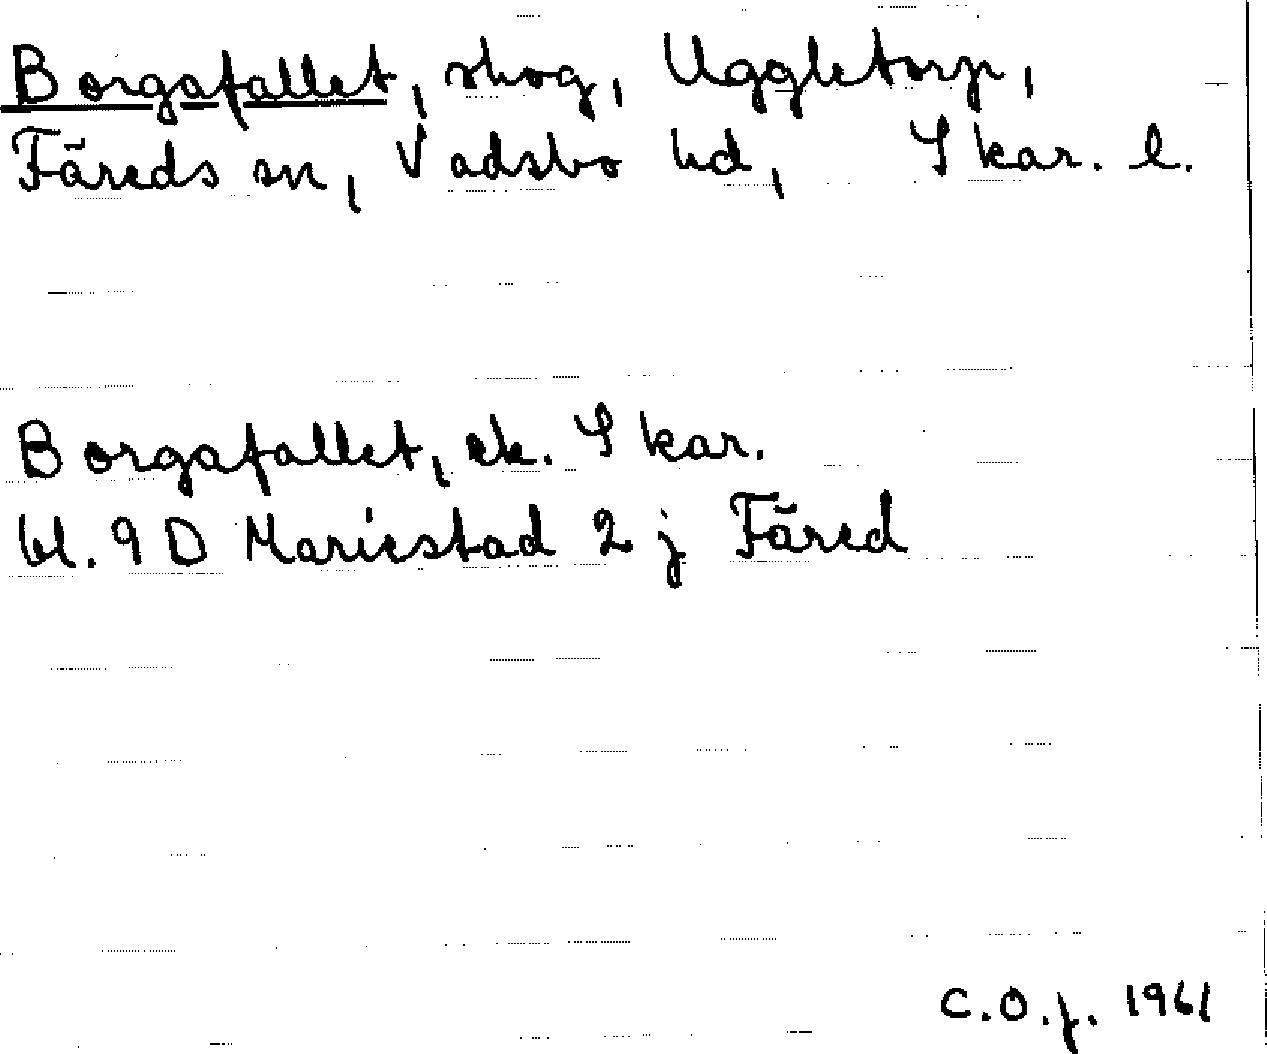 Borgafallet, skog, Uggletorp,
Färeds sn, Vadsbo hd, Skar. l.
Borgafallet, ek. Skar.
bl. 9 D Mariestad 2 j Färed
C.O.j. 1961